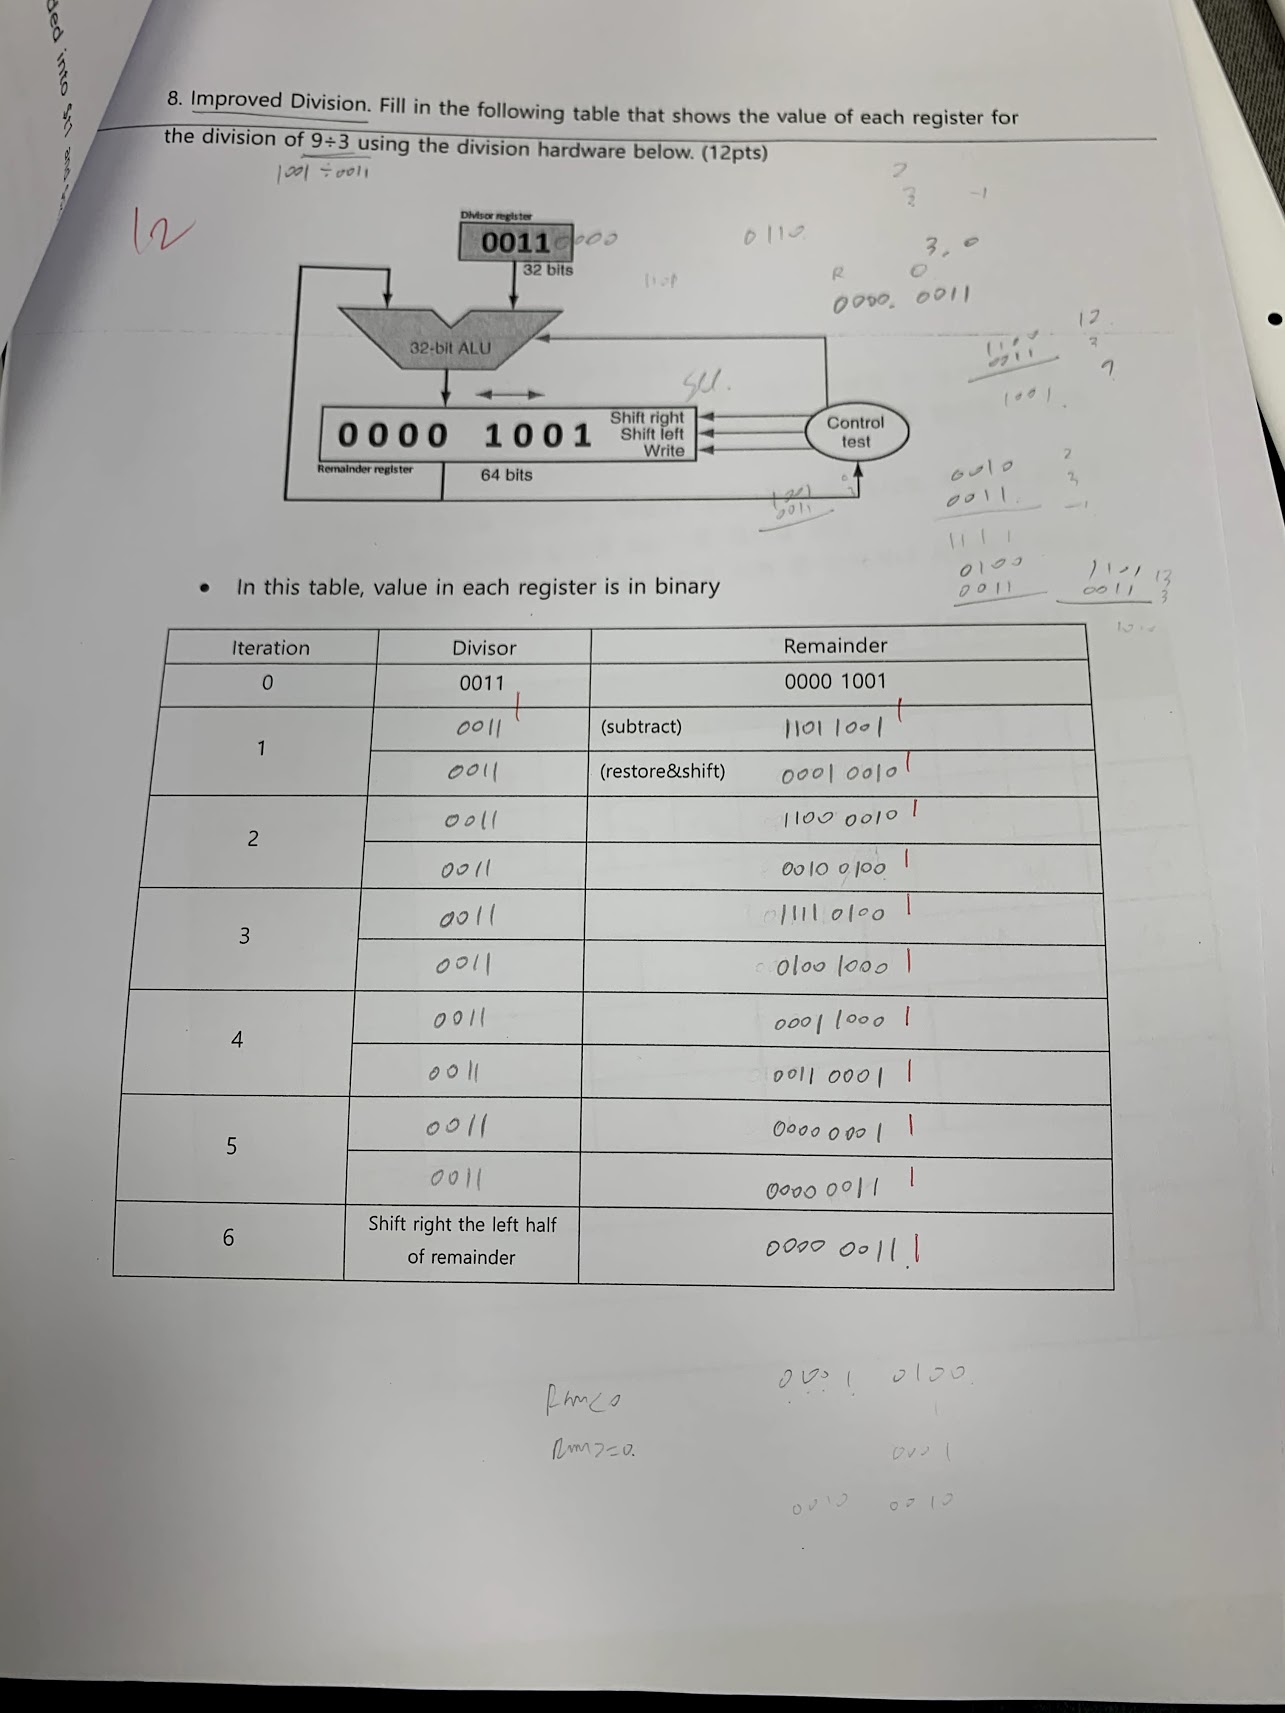 8. Improved Division. Fill in the following table that shows the value of each register for
the division of 9÷3 using the division hardware below. (12pts)
1001 ÷ 0011
12
Divisor register
0011 0000
32 bits
0110
2
3 -1
3. 0
R 0
0000. 0011
1101
32-bit ALU
12
1100 3
0011 9
1001.
Sll.
0000 1001
Shift right
Shift left
Write
Control
test
Remainder register
64 bits
1001
0011
0010 2
0011. 3
-1
1111
0100
0011
1101 13
0011 3
• In this table, value in each register is in binary
Iteration Divisor Remainder
0 0011 0000 1001
1 0011 (subtract) 1101 1001
0011 (restore&shift) 0001 0010
2 0011 1100 0010
0011 0010 0100
3 0011 1111 0100
0011 0100 1000
4 0011 0001 1000
0011 0011 0001
5 0011 0000 0001
0011 0000 0011
6 Shift right the left half
of remainder 0000 0011
0001 1000 0100
Rm<0
Rm>=0.
0001
0010 0010